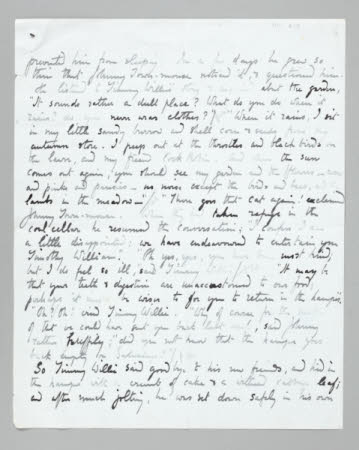 prevented him from sleeping. In a few days he grew so
thin that Johnny Town-mouse noticed it, & questioned him.
He listened to Timmy Willie's story about the garden,
"It sounds rather a dull place? What do you do when it
rains? never wear clothes?" "When it rains, I sit
in my little sandy burrow and shell corn & seeds from my
autumn store. I peep out at the throstles and blackbirds on
the lawn, and my friend Cock Robin. And when the sun
comes out again, you should see my garden and the flowers — roses
and pinks and pansies — no noise except the birds and bees, and
lambs in the meadow —" "There goes that cat again!" exclaimed
Johnny Town-mouse. When they had taken refuge in the
coal cellar he resumed the conversation; "I confess I am
a little disappointed; we have endeavoured to entertain you
Timothy William." "Oh yes, yes, you have been most kind,
but I do feel so ill, said Timmy Willie. "It may be
that your teeth & digestion are unaccustomed to our food,
perhaps it might be wiser for you to return in the hamper.
"Oh? Oh! cried Timmy Willie. "Why of course for the
of that we could have sent you back last week, said Johnny
rather huffily; "did you not know that the hamper goes
back empty on Saturdays?"
So Timmy Willie said goodbye to his new friends, and hid in
the hamper with a crumb of cake & a withered cabbage leaf;
and after much jolting, he was set down safely in his own